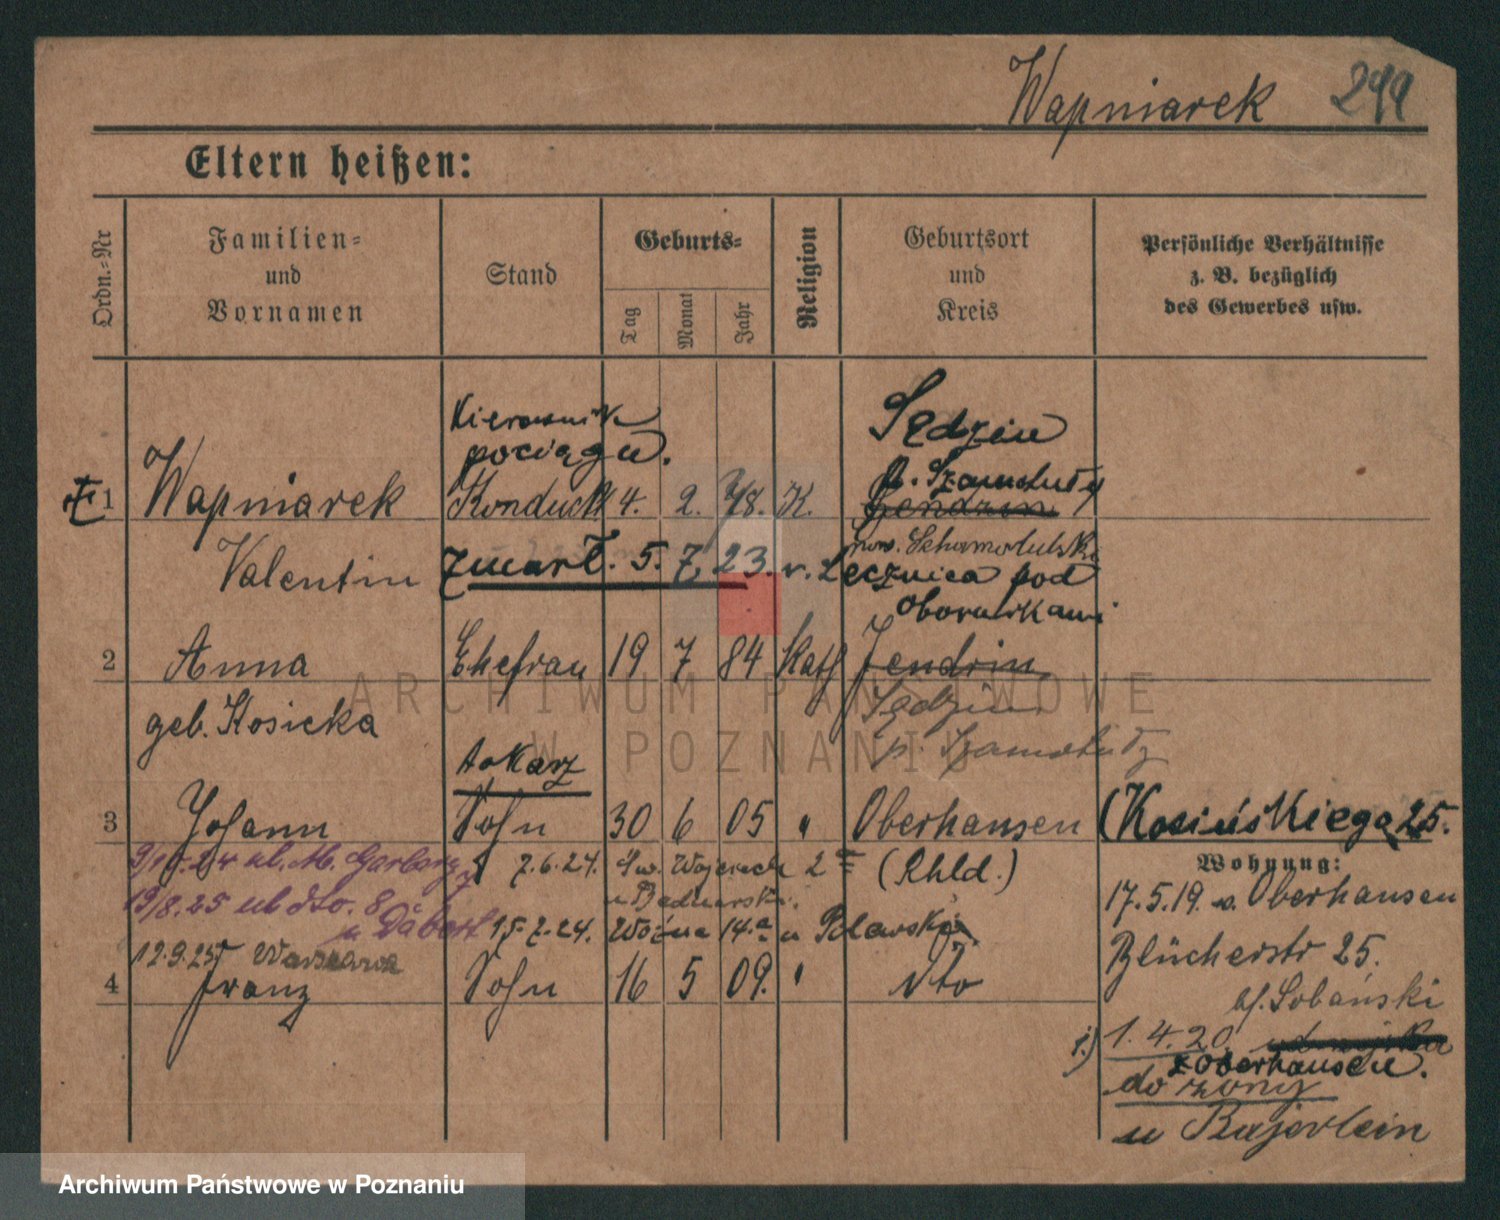 Wapniarek 299
Eltern heißen:
Ordn.=Nr
Familien=
und
Vornamen
Stand
Geburts=
Tag
Monat
Jahr
Religion
Geburtsort
und
Kreis
Persönliche Verhältnisse
z. B. bezüglich
des Gewerbes usw.
Kierownik
pociągu.
Sędzin
p. Szamotuły
1 Wapniarek Konduckt 4. 2. 78. K. Jendrin
pow. Schamotulski
Valentin zmarł. 5. 7. 23. w. Lecznica pod
Obornikami
2 Anna Ehefrau 19 7 84 Kath Jendrin
geb. Kosicka
Sędzin
p. Szamotuły
tokarz
3 Johann Sohn 30 6 05 " Oberhausen (Kosińskiego 25.
9/10.24 ul. M. Garbary 7.6.24. Św. Wojciech 2 (Rhld.)
u Bednarski.
13/8.25 ul dto. 8
u Dabert 15.7.24. Woźna 14.a u Polawska
12.9.25 Warszawa
4 Franz Sohn 16 5 09. " dto
Wohnung:
17.5.19. v. Oberhausen
Blücherstr 25.
bf. Sobański
1.4.20.
z Oberhausen.
do żony
u Bajerlein
ARCHIWUM PAŃSTWOWE
W POZNANIU
Archiwum Państwowe w Poznaniu